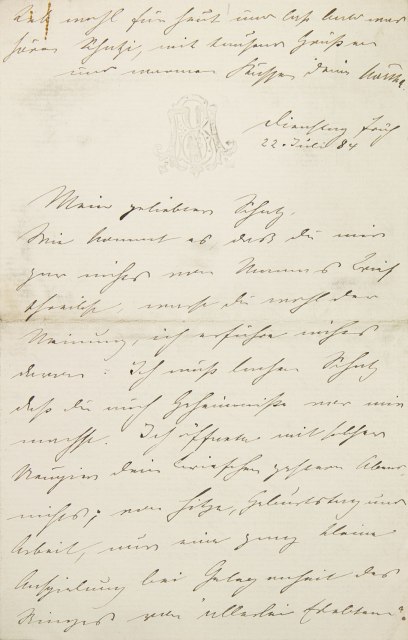 Leb wohl für heut und laß bald was
hören Schatzi, mit tausend Grüßen
und warmen Küssen deine Martha
Dienstag früh
22. Juli 84
Mein geliebter Schatz.
Wie kommt es daß du mir
gar nichts von Mamas Brief
schreibst, warst du wohl der
Meinung, ich erführe nichts
davon? Ich muß lachen Schatz
daß du noch Geheimniße vor mir
machst. Ich öffnete mit solcher
Neugier dein Briefchen gestern Abend
nichts, von Hitze, Geburtstag und
Arbeit, nur eine ganz kleine
Anspielung bei Gelegenheit des
Ringes von "allerlei Erlebten".